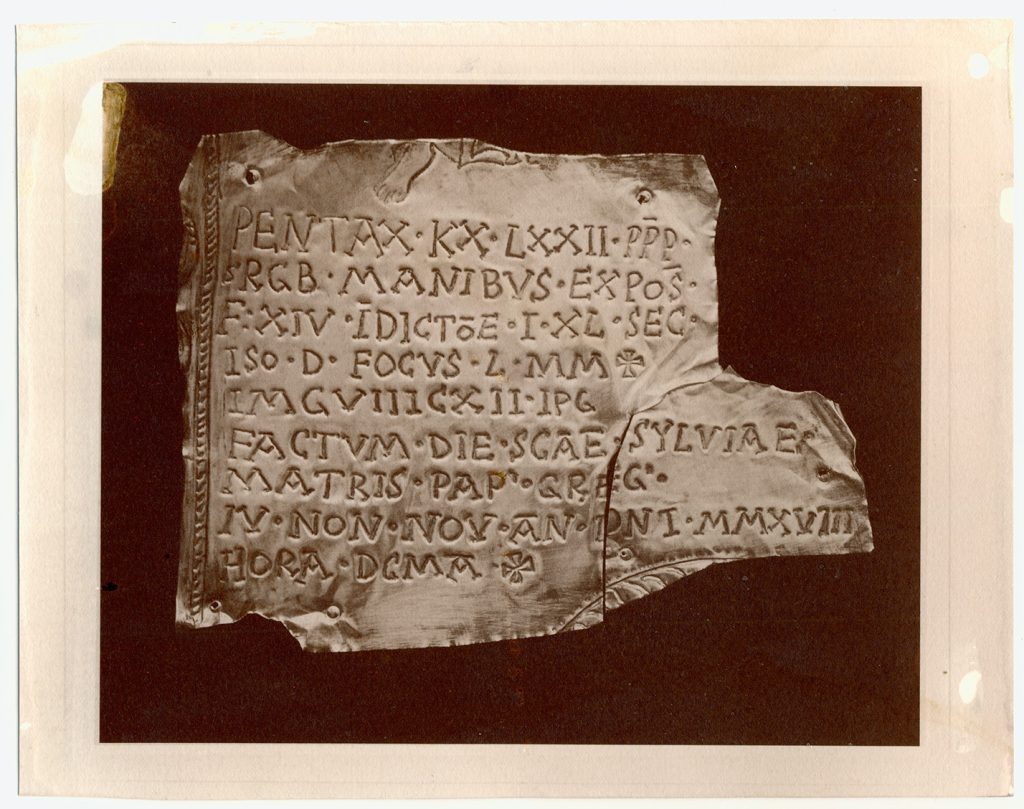 PENTAX·KX·LXXII·P̄P̄D·
s·RGB·MANIBVS·EXPOS̄·
F:XIV·ĪDICTōE·I·XL·SEC·
ISO·D·FOCVS·L·MM✠
IMGVIIICXII·IPG
FACTVM·DIE·SCĀE·SYLVIAE·
MATRIS·PAP'·GREG'·
IV·NON·NOV·ĀN·DNI·MMXVIII
HORA·DCMA✠